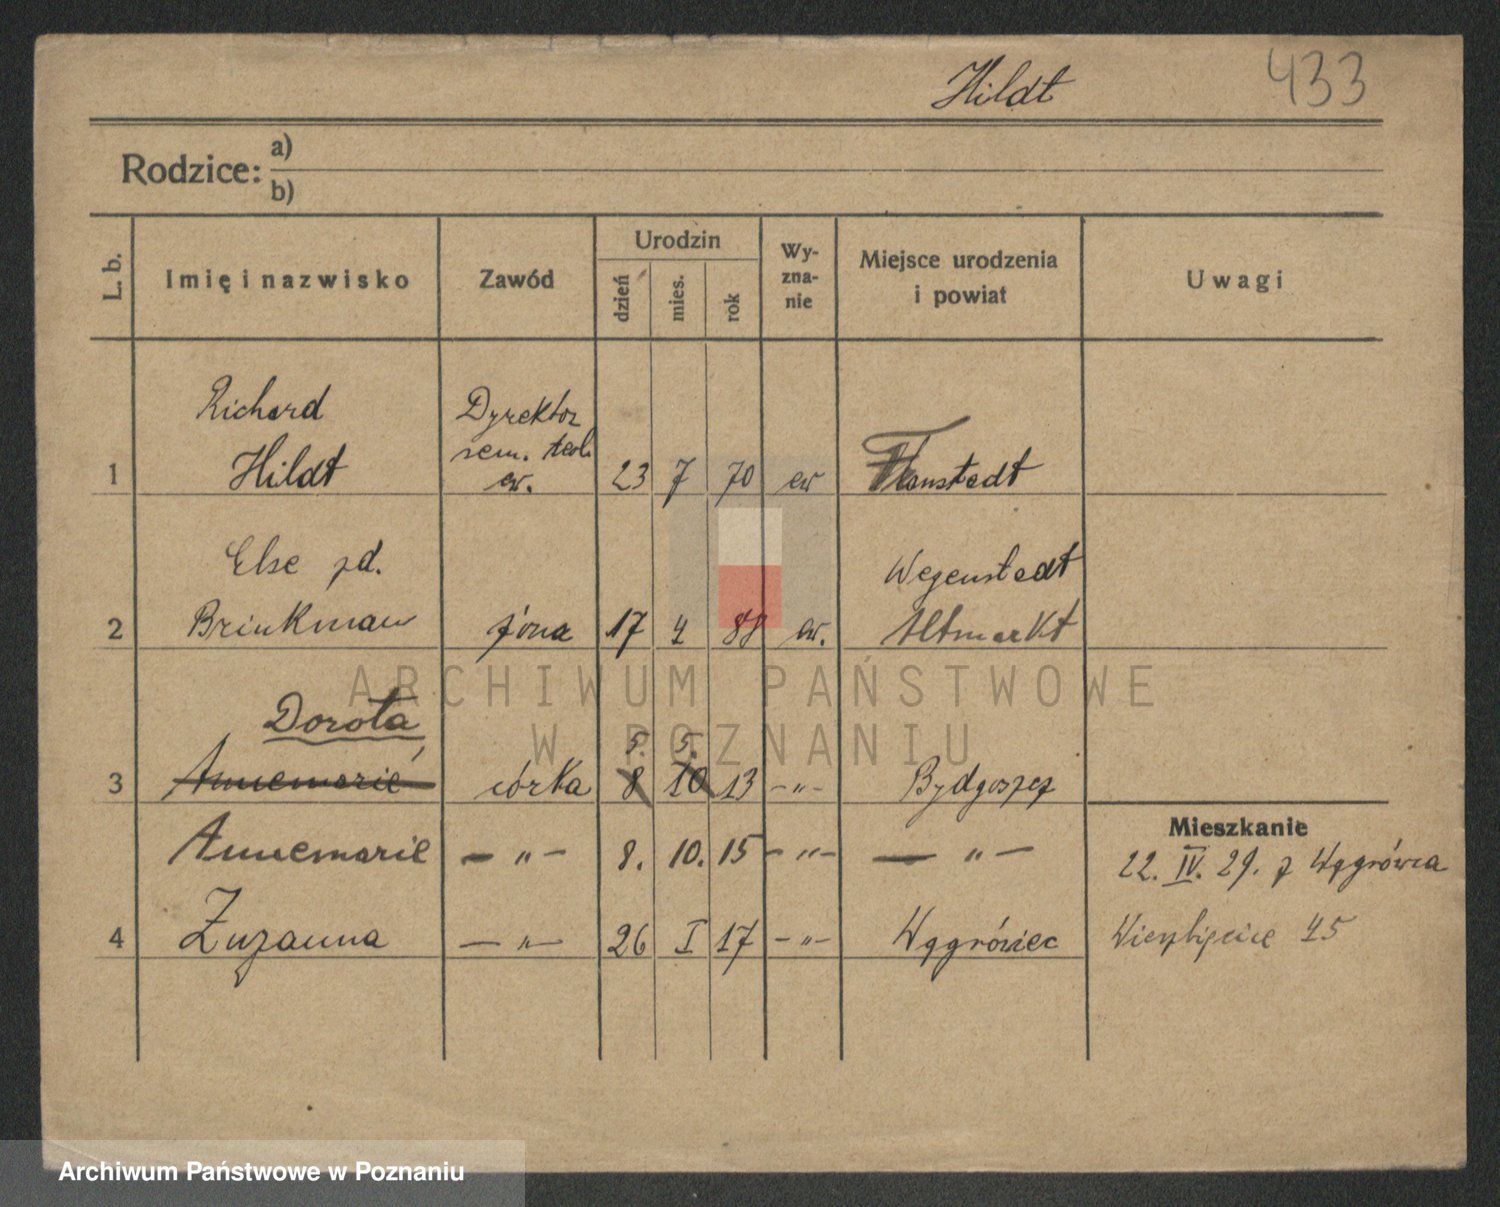 Hildt 433
Rodzice: a)
b)
L. b. Imię i nazwisko Zawód Urodzin dzień mies. rok Wy-zna-nie Miejsce urodzenia i powiat Uwagi
Richard Dyrektor
sem. teol.
1 Hildt ew. 23 7 70 ew Fanstedt
Else zd. Wegenstedt
2 Brinkman żona 17 4 88 ew. Altmarkt
Dorota 5. 5.
3 Annemarie córka 8 10 13 -"- Bydgoszcz
Mieszkanie
Annemarie - " - 8. 10. 15 - " - - " -
22. IV. 29. z Wągrówca
4 Zuzanna - " - 26 I 17 - " - Wągrówiec
45
ARCHIWUM PAŃSTWOWE
W POZNANIU
Archiwum Państwowe w Poznaniu